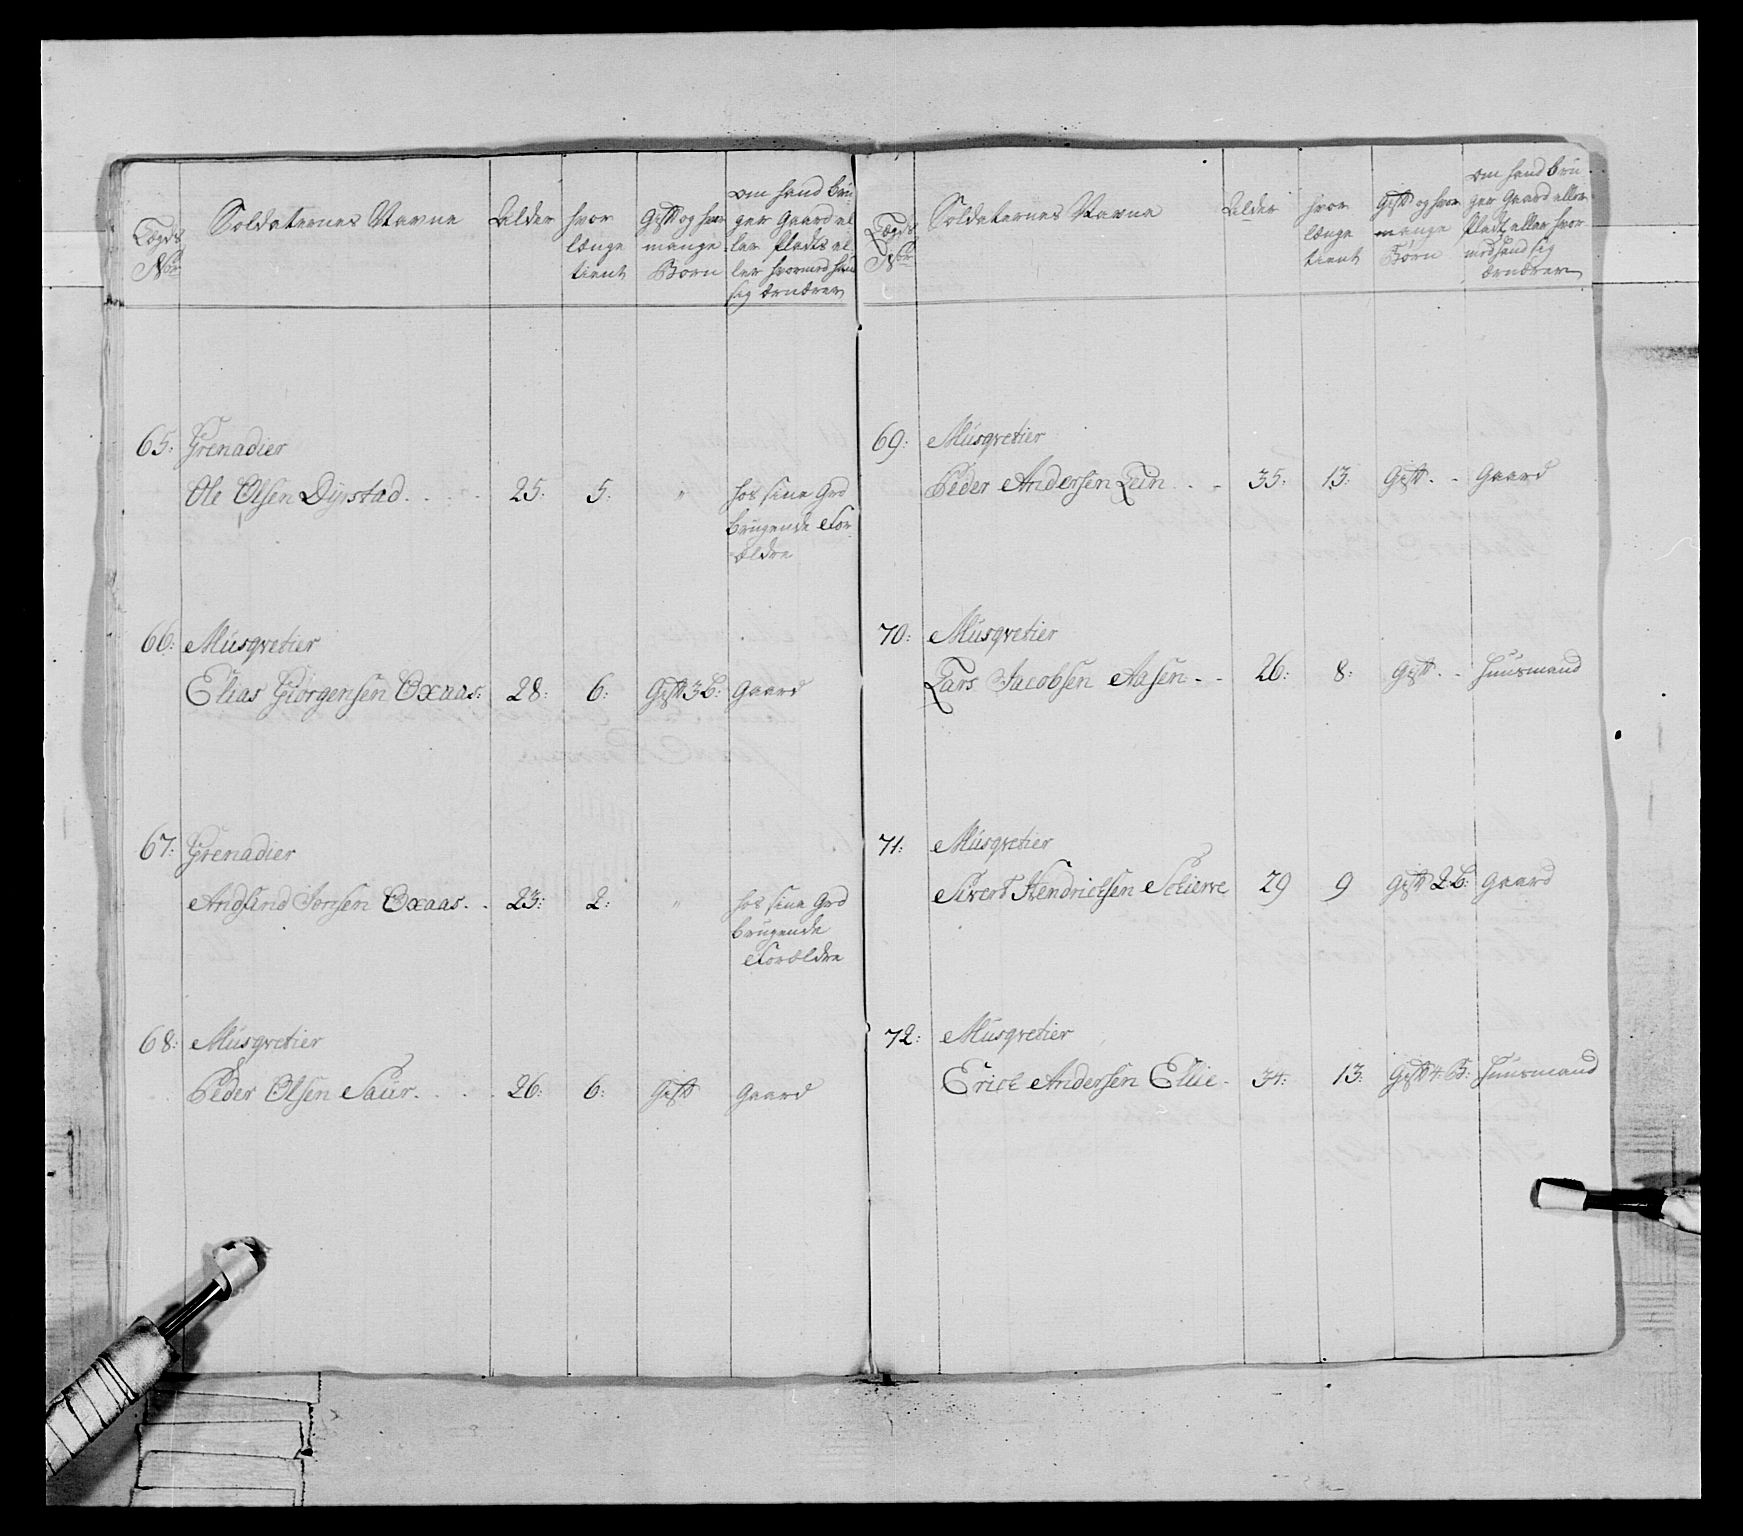 Lægds No
Soldaternes Navne
Alder
hvor længe tient
Gift og hvor mange Børn
om hand bru-
ger Gaard el
ler Plads el
ler hvormed hand
sig ærnærer
65: Grenadier
Ole Olsen Dyrstad. . . . 25: 5: " hos sine Grd
brugende For-
ældre
66: Musqvetier
Elias Giørgensen Oxaas: 28: 6: Gift 3 B: Gaard
67: Grenadier
Amund Jonsen Oxaas. . 23: 2: " hos sine Grd
brugende
Forældre
68: Musqvetier
Peder Olsen Saur. . . . 26: 6: Gift Gaard
Lægds No
Soldaternes Navne
Alder
hvor længe tient
Gift og hvor mange Børn
om hand bru
ger Gaard eller
Plads eller hvor
med hand sig
ærnærer
69: Musqvetier
Peder Andersen Lein . . 35: 13: Gift. . Gaard
70: Musqvetier
Lars Jacobsen Aasen. . 26: 8: Gift. . Huusmand
71: Musqvetier
Sivert Hendricksen Schierve 29 9 Gift 2 B: Gaard
72: Musqvetier
Erick Andersen Ellie. 34: 13: Gift 4 B: Huusmand